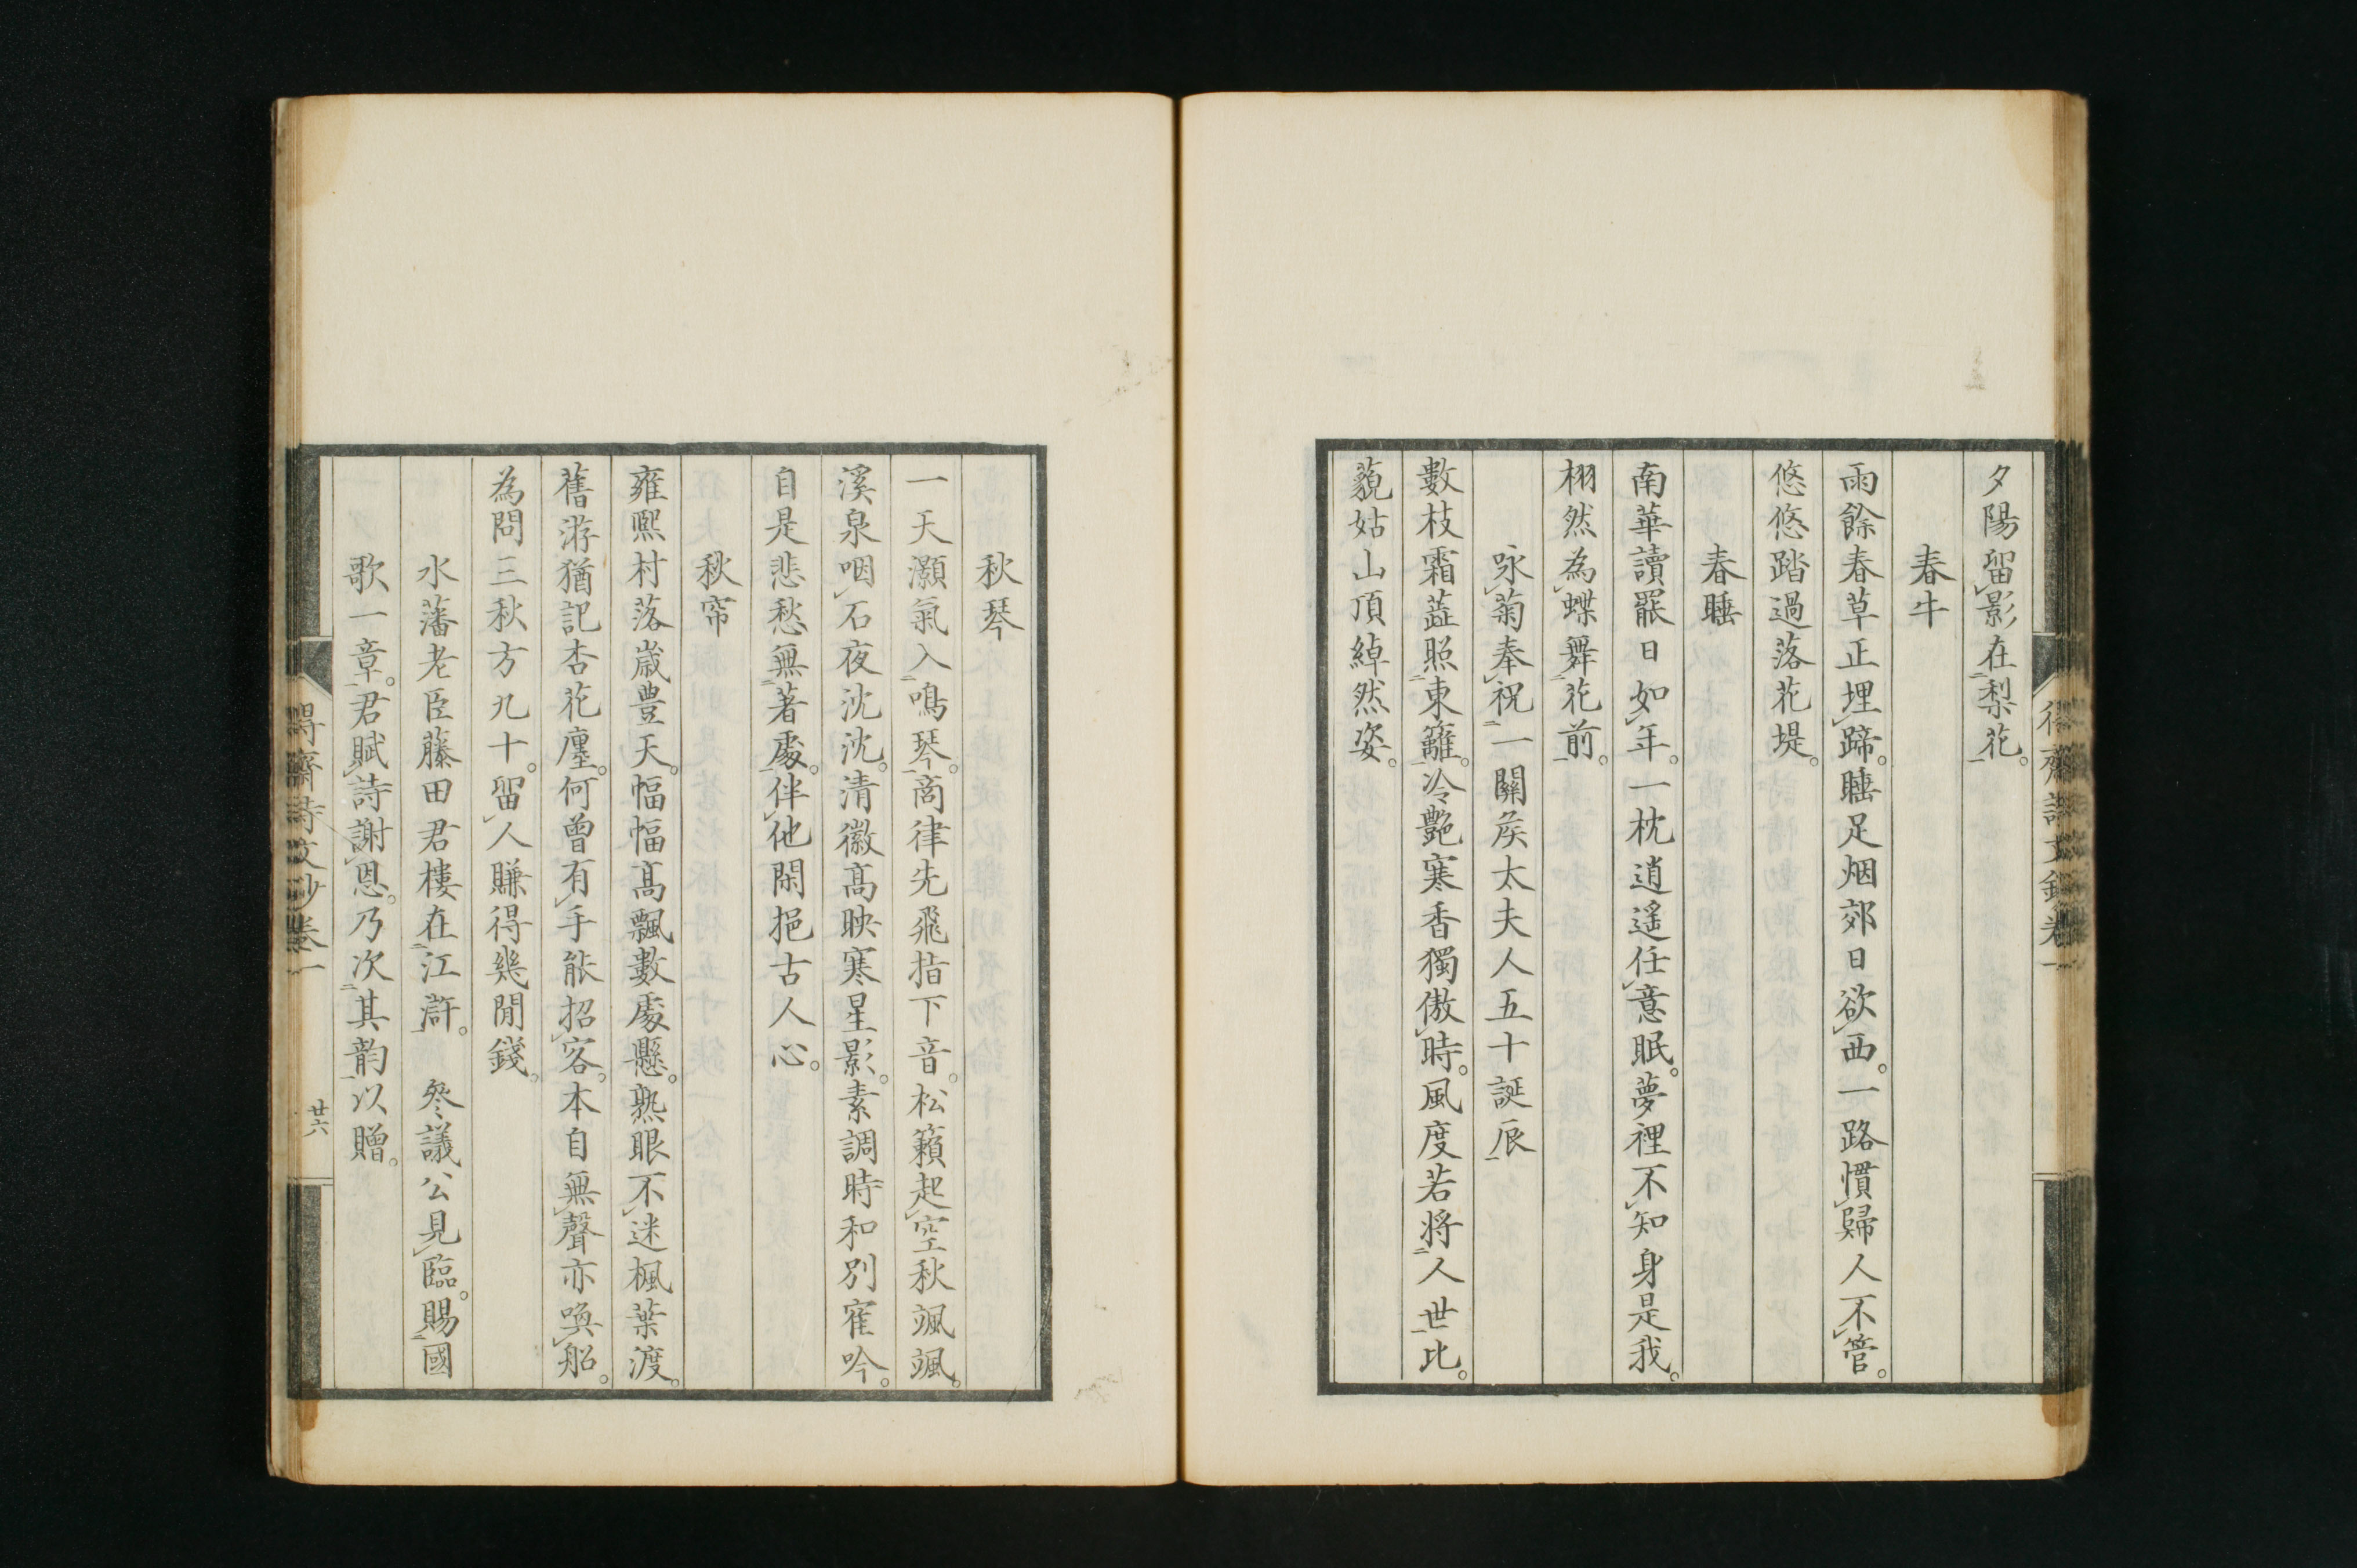 夕陽留影在梨花。
春牛
雨餘春草正埋蹄。睡足烟郊日欲西。一路慣歸人不管。
悠悠踏過落花堤。
春睡
南華讀罷日如年。一枕逍遙任意眠。夢裡不知身是我。
栩然為蝶舞花前。
咏菊奉祝一關侯太夫人五十誕辰
數枝霜蕋照東籬。冷艷寒香獨傲時。風度若將人世比。
藐姑山頂綽然姿。
秋琴
一天灝氣入鳴琴。商律先飛指下音。松籟起空秋颯颯。
溪泉咽石夜沈沈。清徽高映寒星影。素調時和別寉吟。
自是悲愁無著處。伴他閑挹古人心。
秋帘
雍熙村落歲豊天。幅幅高飄數處懸。熟眼不迷楓葉渡。
舊游猶記杏花廛。何曾有手能招客。本自無聲亦喚船。
為問三秋方九十。留人賺得幾閒錢。
水藩老臣藤田君樓在江滸。 叅議公見臨。賜國
歌一章。君賦詩謝恩。乃次其韵以贈。
得齋詩文鈔卷一
廿六